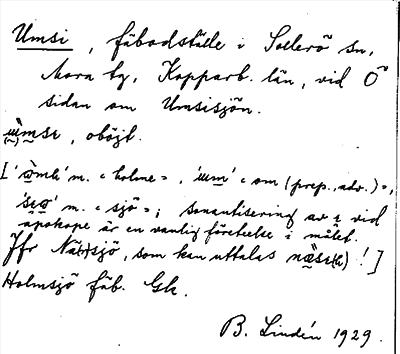 Umsi, fäbodställe i Sollerö sn,
Mora by, Kopparb. län, vid Ö
sidan om Umsisjön.
ɯ̀msɩ, oböjt.
[ 'ɔ̀mb' m. = holme =, 'ɯm' = om (prep., adv.) =,
'sɩo' m. = sjö =; sonantisering av ɩ vid
apokope är en vanlig företeelse i målet.
Jfr Nä(s)sjö, som kan uttalas nä̀sɩ(ə)! ]
Holmsjö fäb. Gk.
B. Lindén 1929.